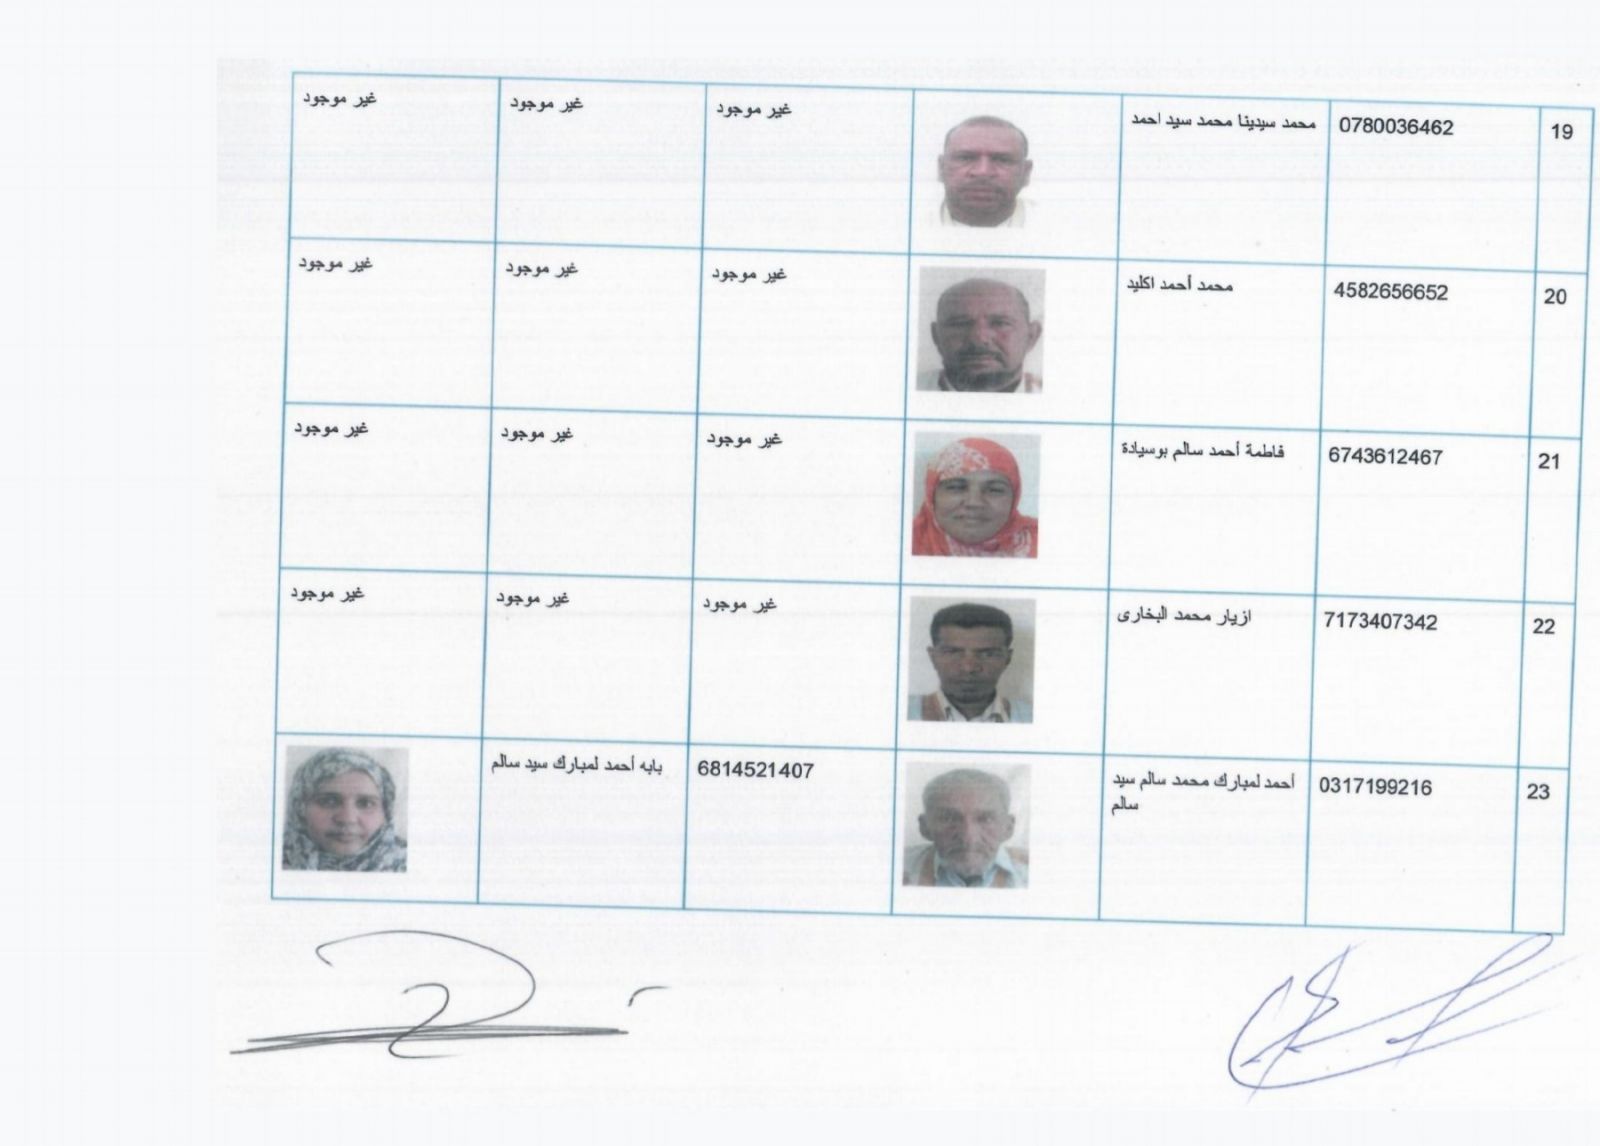 19 0780036462 محمد سيدينا محمد سيد احمد غير موجود غير موجود غير موجود
20 4582656652 محمد أحمد اكليد غير موجود غير موجود غير موجود
21 6743612467 فاطمة أحمد سالم بوسيادة غير موجود غير موجود غير موجود
22 7173407342 ازيار محمد البخارى غير موجود غير موجود غير موجود
23 0317199216 أحمد لمبارك محمد سالم سيد 6814521407 بابه أحمد لمبارك سيد سالم
سالم